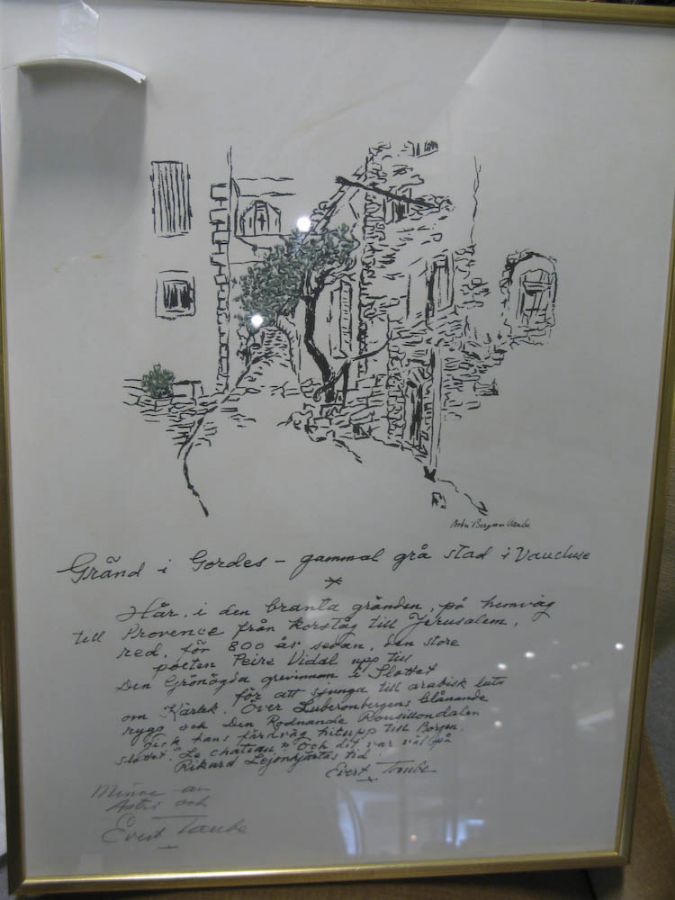 Astri Bergman Taube
Gränd i Gordes – gammal grå stad i Vaucluse
*
Här, i den branta gränden, på hemväg
till Provence från korståg till Jerusalem,
red, för 800 år sedan, den store
poeten Peire Vidal upp till
Den Grönögda grevinnan i Slottet
för att sjunga till arabisk luta
om Kärlek. Över Luberonbergens blånande
rygg och Den Rodnande Roussillondalen
gick hans färdväg hitupp till Borgen,
slottet "Le château". Och dit var väl på
Rikard Lejonhjärtas tid
Evert Taube
Minne av
Astri och
Evert Taube